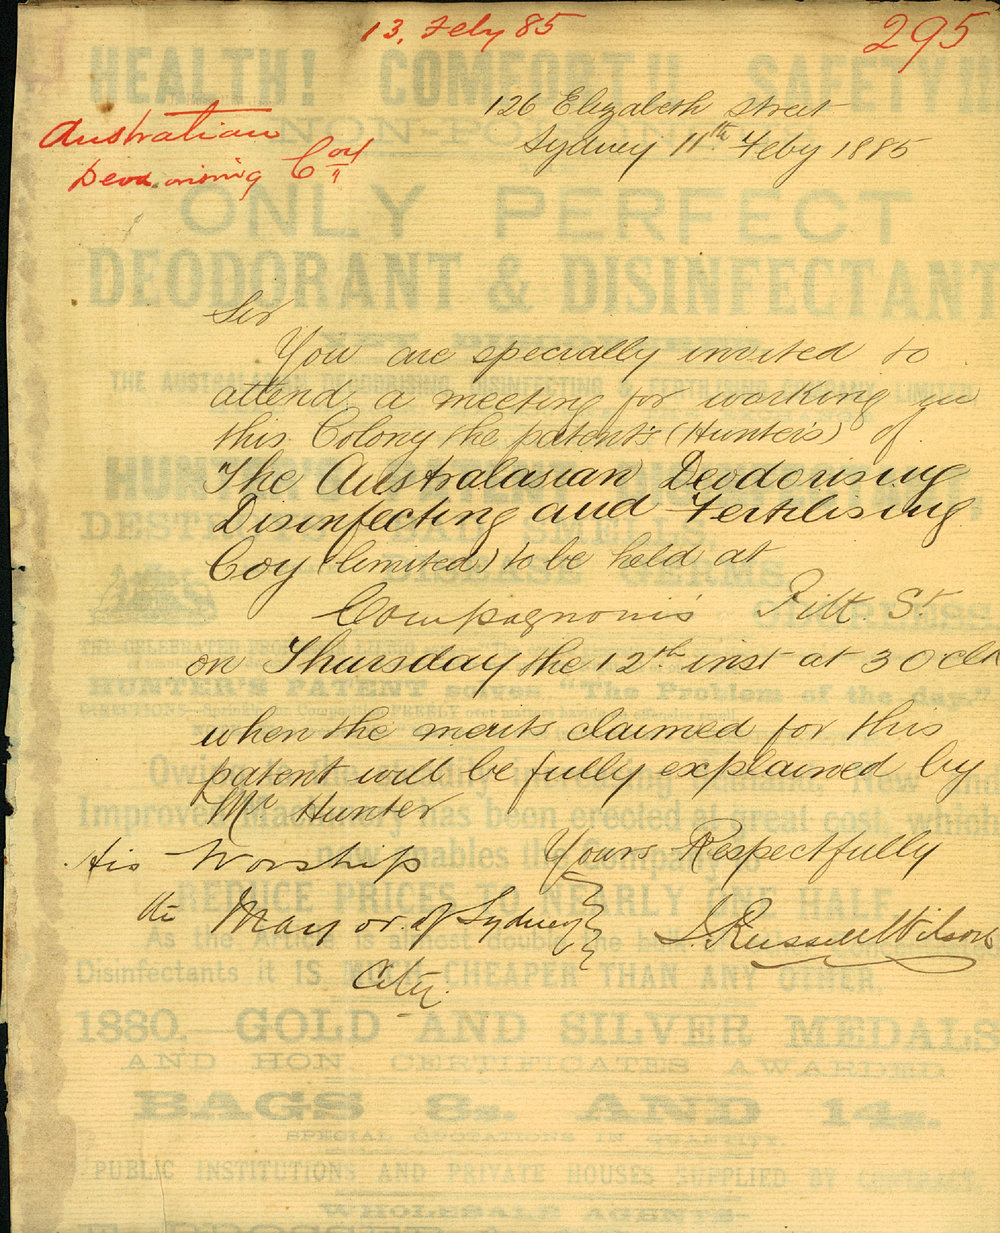 13, Feby 85
295
Australian
Deod.orising Coy
126 Elizabeth Street
Sydney 11th Feby 1885
Sir
You are specially invited to
attend a meeting for working in
this Colony the patents (Hunter's) of
The Australasian Deodorising
Disinfecting and Fertilising
Coy (limited) to be held at
Compagnoni's Pitt. St
on Thursday the 12th inst at 3 O clk
when the merits claimed for this
patent will be fully explained by
Mr Hunter
Yours Respectfully
His Worship
the Mayor of Sydney
City.
J. Russell Wilson
HEALTH! COMFORT!! SAFETY!!!
NON-POISONOUS
ONLY PERFECT
DEODORANT & DISINFECTANT
YET DISCOVERED.
THE AUSTRALASIAN DEODORISING, DISINFECTING & FERTILISING COMPANY LIMITED
HUNTER'S PATENT
DESTROYS BAD SMELLS,
DISEASE GERMS
ODORLESS
THE CELEBRATED
HUNTER'S PATENT solves "The Problem of the day."
DIRECTIONS
Owing to the steadily increasing demand, New and
Improved Machinery has been erected at great cost, which
now enables the Company to
REDUCE PRICES TO NEARLY ONE HALF.
As the Article is almost double the bulk
Disinfectants it IS MUCH CHEAPER THAN ANY OTHER.
1880.—GOLD AND SILVER MEDALS
AND HON. CERTIFICATES AWARDED.
BAGS 8s. AND 14s.
SPECIAL QUOTATIONS IN QUANTITY.
PUBLIC INSTITUTIONS AND PRIVATE HOUSES SUPPLIED BY CONTRACT.
WHOLESALE AGENTS—